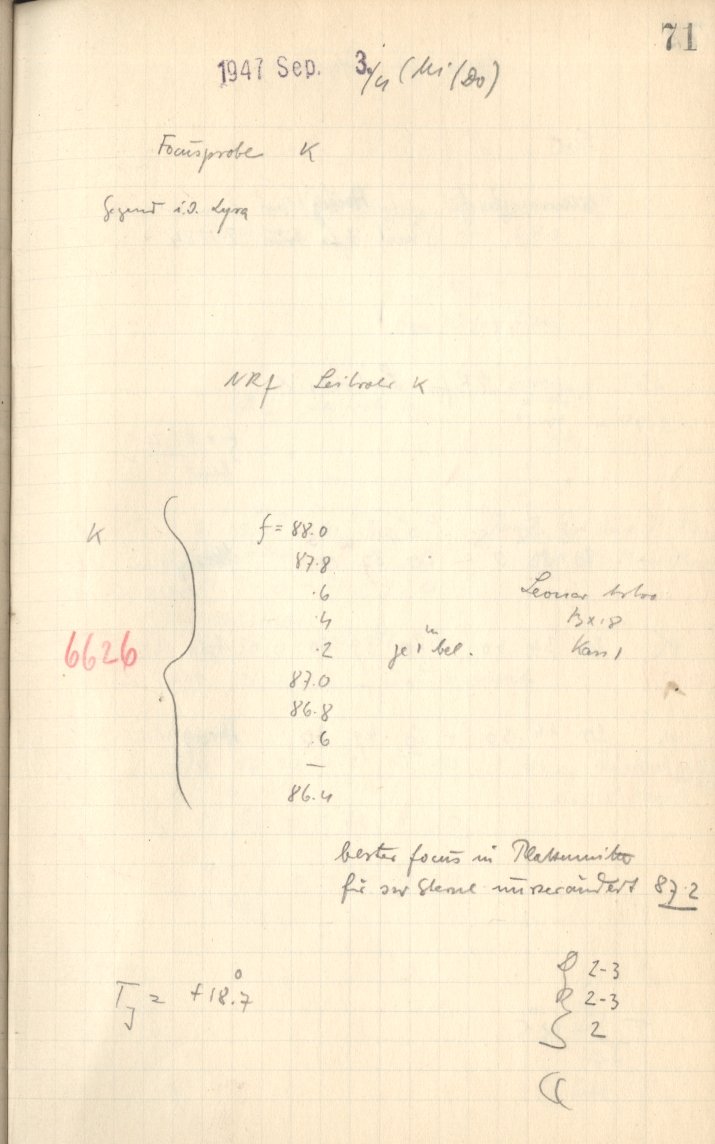 71
1947 Sep. 3./4 (Mi/Do)
Focusprobe K
Gegend i.d. Lyra
NRf Leitrohr K
K
6626
f = 88.0
87.8
.6
.4
.2
87.0
86.8
.6
—
86.4
je 1m bel.
Leonar
Kass 1
bester focus in Plattenmitte
für sw Sterne unverändert 87.2
TJ = +18.7°
D 2-3
R 2-3
S 2